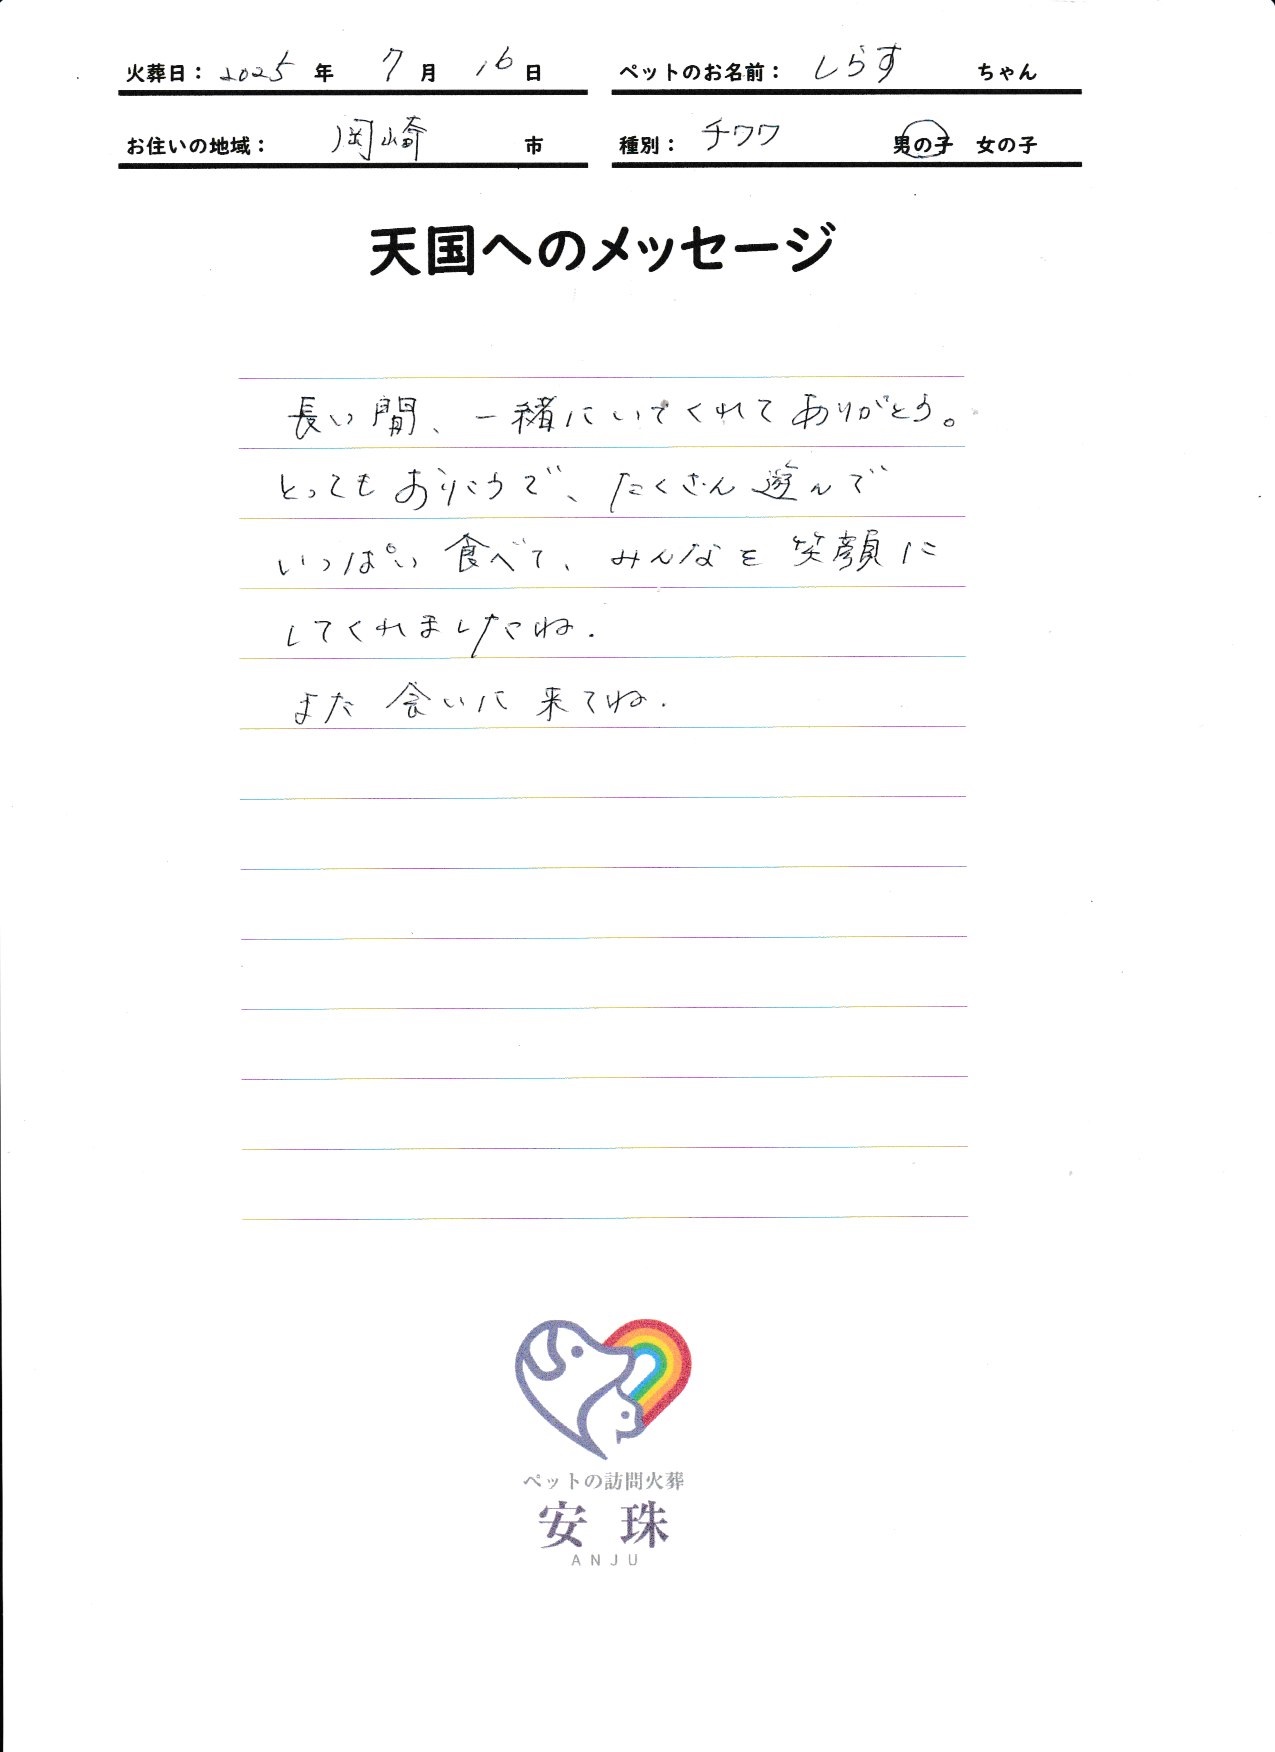 火葬日： 2025 年 7 月 16 日
ペットのお名前： しらす ちゃん
お住いの地域： 岡崎 市
種別： チワワ 男の子 女の子
天国へのメッセージ
長い間、一緒にいてくれてありがとう。
とってもおりこうで、たくさん遊んで
いっぱい食べて、みんなを笑顔に
してくれましたね.
また会いに来てね.
ペットの訪問火葬
安珠
ANJU